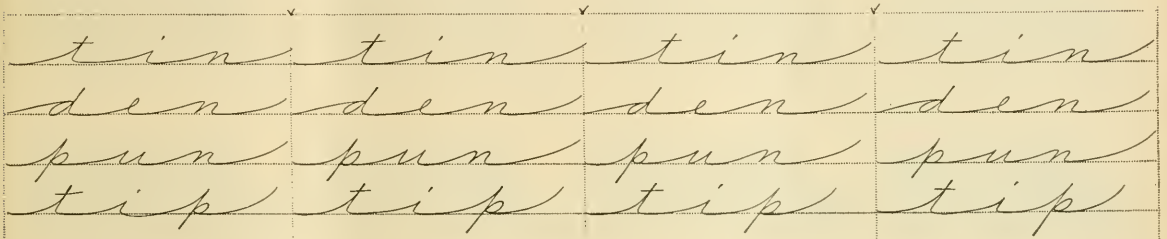 tin tin tin tin
den den den den
pun pun pun pun
tip tip tip tip